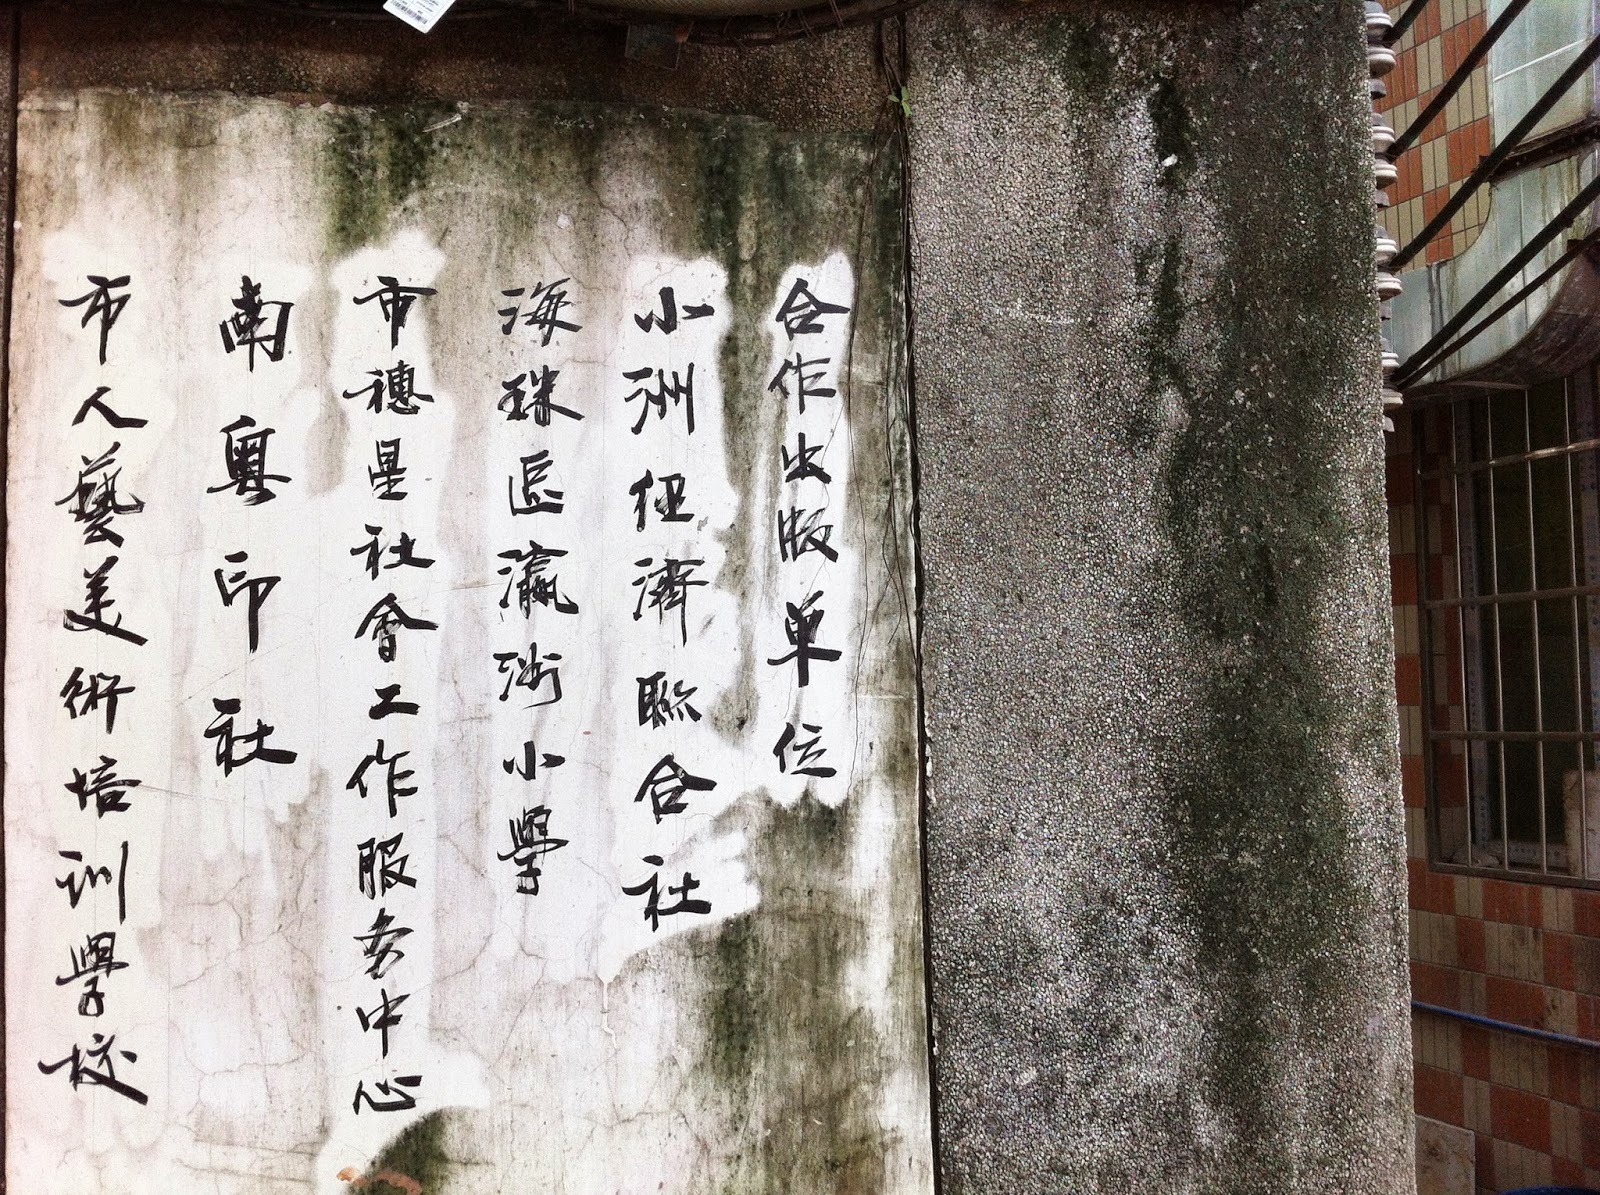 合作出版单位
小洲经濟聯合社
海珠區瀛洲小學
市穗星社會工作服务中心
南粤印社
市人藝美術培训學校